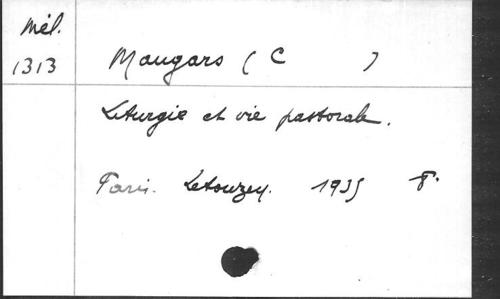 Mél.
1313
Maugars (C )
Liturgie et vie pastorale.
Paris. Letouzey. 1935 8°.